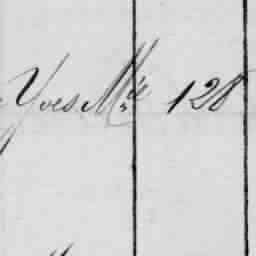 Yves Mie 128